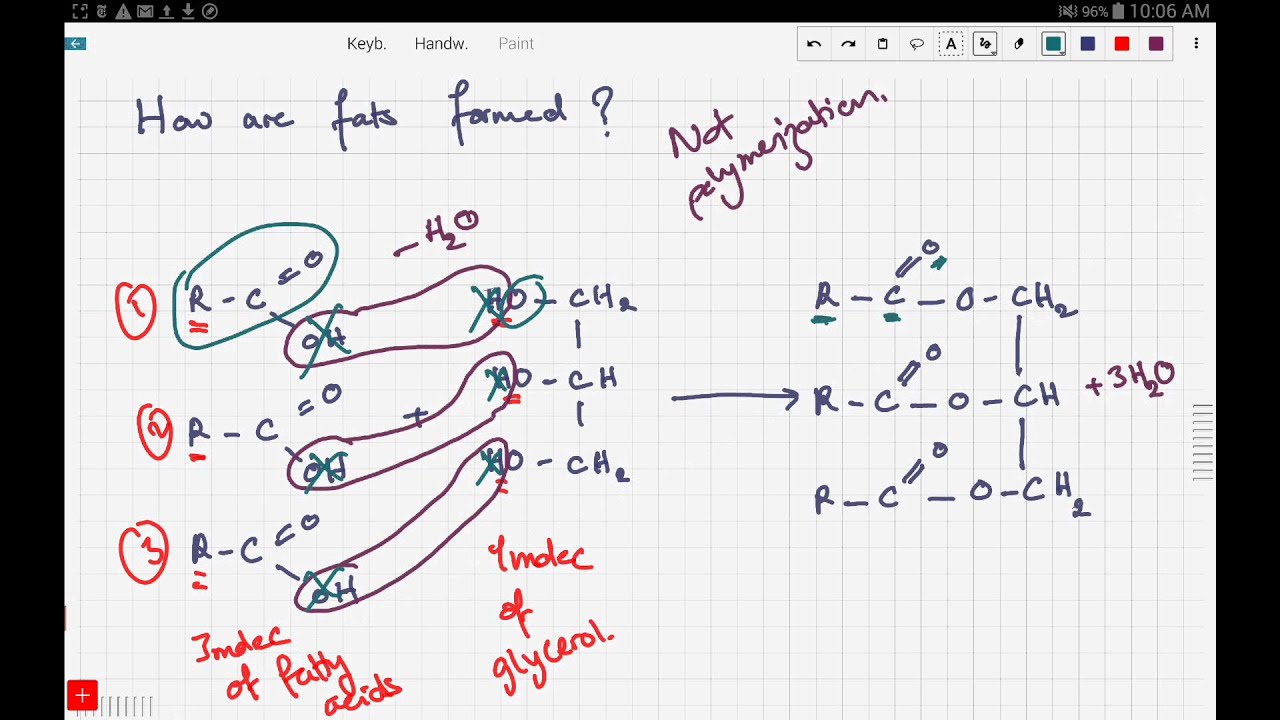 96% 10:06 AM
Keyb. Handw. Paint
A
How are fats formed?
Not
polymerization.
- H2O
O
① R - C
OH
HO - CH2
O
② R - C
OH
+
HO - CH
O
③ R - C
OH
HO - CH2
O
R - C - O - CH2
O
R - C - O - CH + 3H2O
O
R - C - O - CH2
3 molec
of fatty
acids
1 molec
of
glycerol.
+